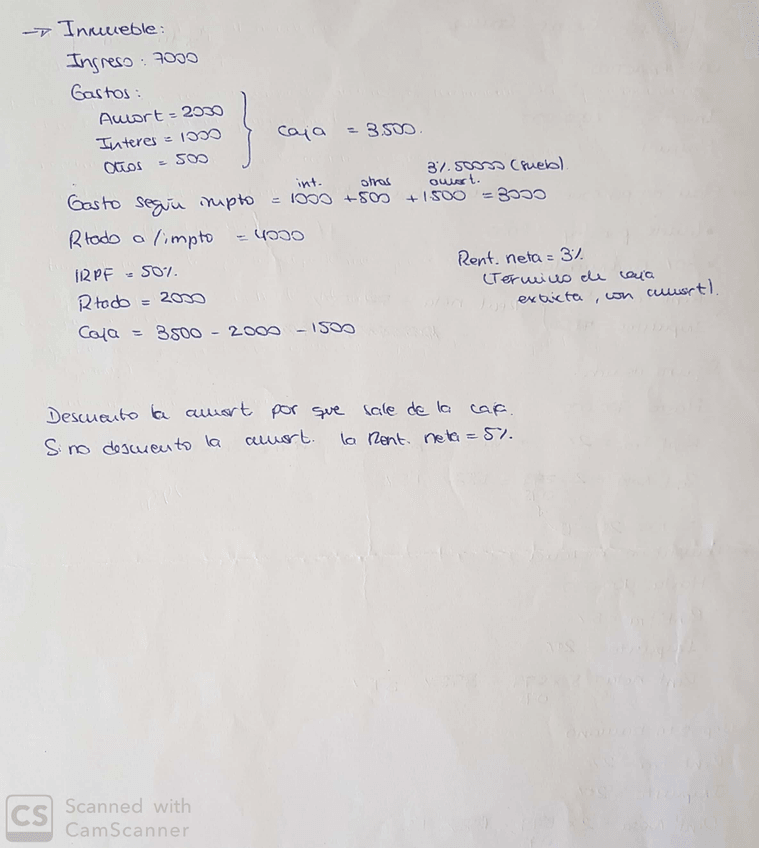 → Inmueble:
Ingreso: 7000
Gastos:
Amort = 2000
Interes = 1000
Otros = 500
Caja = 3.500.
3%. 50000 (suelo).
int. otros amort.
Gasto según impto = 1000 + 500 + 1.500 = 3000
Rtado a/impto = 4000
IRPF = 50%.
Rtado = 2000
Caja = 3500 - 2000 - 1500
Rent. neta = 3%
(Termino de caja
extricta, con amort).
Descuento la amort por que sale de la caja.
Si no descuento la amort. la Rent. neta = 5%.
CS Scanned with
CamScanner